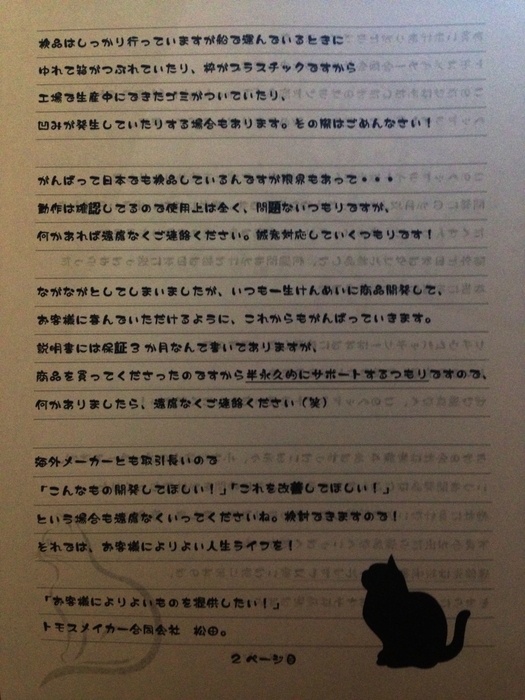 検品はしっかり行っていますが船で運んでいるときに
ゆれて箱がつぶれていたり、枠がプラスチックですから
工場で生産中にできたゴミがついていたり、
凹みが発生していたりする場合もあります。その際はごめんなさい！
がんばって日本でも検品しているんですが限界もあって・・・
動作は確認してるので使用上は全く、問題ないつもりですが、
何かあれば遠慮なくご連絡ください。誠意対応していくつもりです！
ながながとしてしまいましたが、いつも一生けんめいに商品開発して、
お客様に喜んでいただけるように、これからもがんばっていきます。
説明書には保証３か月なんて書いてありますが、
商品を買ってくださったのですから半永久的にサポートするつもりですので、
何かありましたら、遠慮なくご連絡ください（笑）
海外メーカーとも取引長いので
「こんなもの開発してほしい！」「これを改善してほしい！」
という場合も遠慮なくいってくださいね。検討できますので！
それでは、お客様によりよい人生ライフを！
「お客様によりよいものを提供したい！」
トモスメイカー合同会社　松田。
２ページ目